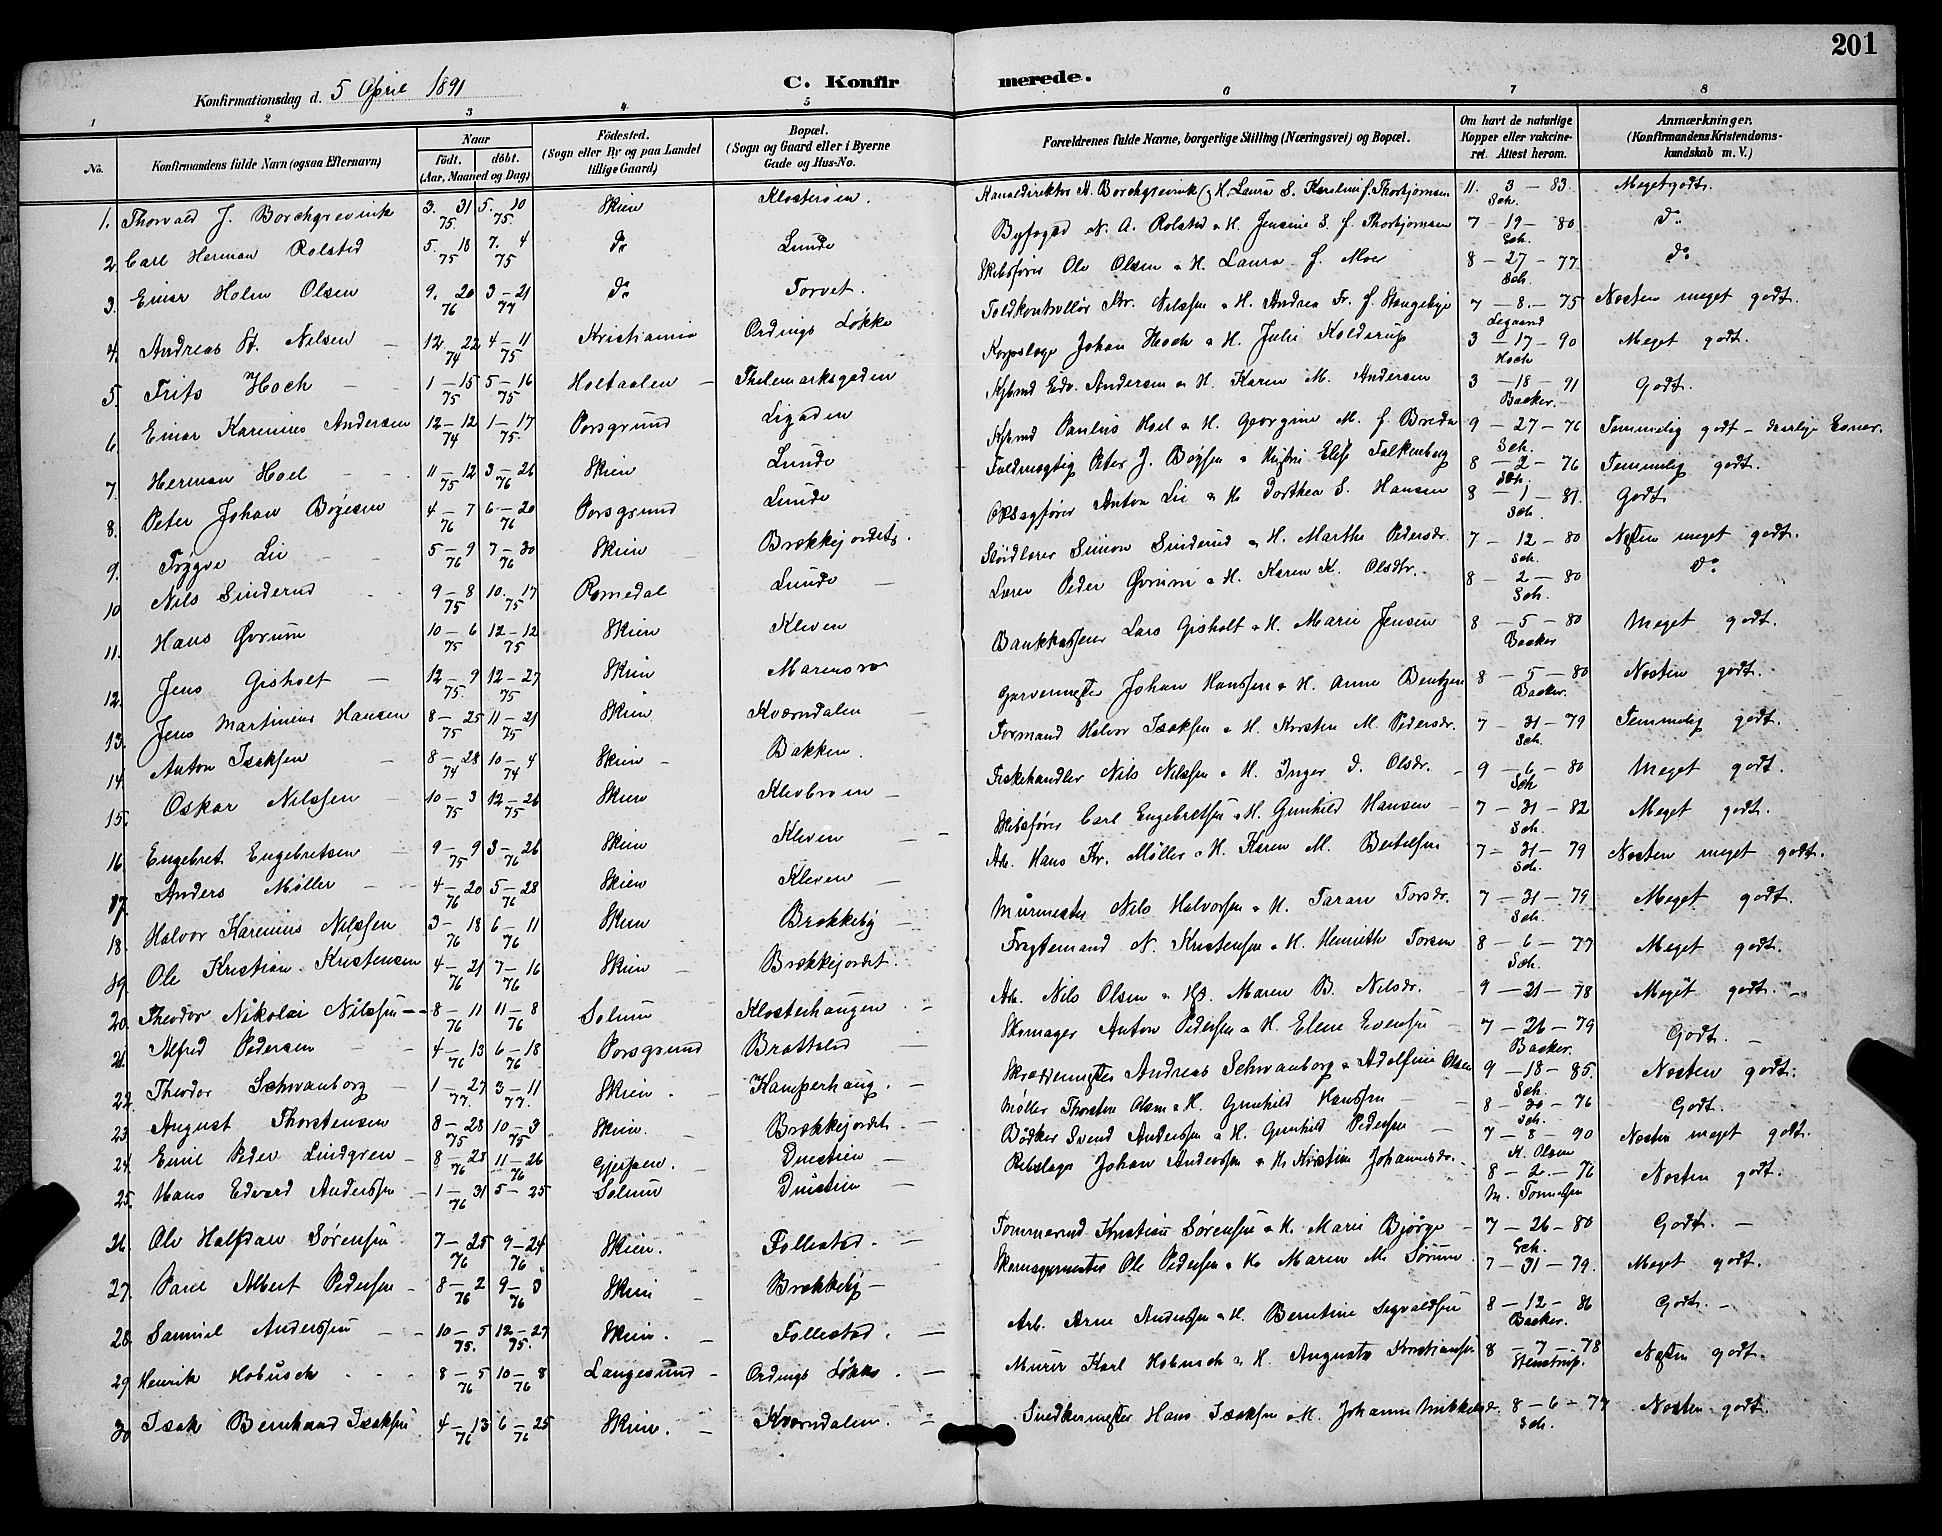 201
Konfirmationsdag d. 5 April 1891
C. Konfirmerede.
1 2 3 4 5 6 7 8
No. Konfirmandens fulde Navn (ogsaa Efternavn) Naar født. døbt. (Aar, Maaned og Dag) Fødested. (Sogn eller By og paa Landet tillige Gaard) Bopæl. (Sogn og Gaard eller i Byerne Gade og Hus-No. Forældrenes fulde Navne, borgerlige Stilling (Næringsvei) og Bopæl. Om havt de naturlige Kopper eller vakcineret. Attest herom. Anmærkninger. (Konfirmandens Kristendomskundskab m. V.)
1. Thorvald J. Borchgrevink 3. 31 75 5. 10 75 Skien Klosterøien. Kanaldirektør A. Borchgrevink & H. Laura S. Karoline f. Thorbjørnsen 11. 3 - 83. Sch. Meget godt.
2 Carl Herman Rolsted 5 18 75 7. 4 75 do Lunde Byfoged N. A. Rolsted & H. Jensine S. f. Thorbjørnsen 7 - 19 - 80 Sch. do
3. Einar Holm Olsen 9. 20 76 3 - 21 77 do Torvet. Skibsfører Ole Olsen & H. Laura f. Moe 8 - 27 - 77 Sch. do
4. Andreas St. Nilsen - 12 22 74 4 - 11 75 Kristiania Ordings Løkke Toldkontrollør Kr. Nilssen & H. Andrea Fr. f. Stangebye 7 - 8. - 75 Legaard Næsten meget godt.
5. Frits Hoch - - 1 - 15 75 5 - 16 75 Holtaalen - Thelemarksgaden Korpslæge Johan Hoch & H. Julie Kolderup 3 - 17 - 90 Hoch Meget godt.
6 Einar Karenius Andersen 12 - 12 74 1 - 17 75. Porsgrund Ligaden Kjbmd Edv. Andersen & H. Karen M. Andersen 3 - 18 - 91 Backer. Godt.
7. Herman Hoel - - 11 - 12 75 3 - 26 76 Skien Lunde Kjbmd Paulus Hoel & H. Georgine M. f. Breda 9 - 27 - 76 Sch. Temmelig godt - daarlige Evner.
8. Peter Johan Bøyesen 4 - 7 76 6 - 20 76 Porsgrund Lunde Fuldmægtig Peter J. Bøysen & Hustru Elise Falkenberg 8 - 2 - 76 Sch. Temmelig godt.
9. Trygve Lie - - 5 - 9 76 7 - 30 76 Skien - Brækkejordet. Oksagfører Anton Lie & H. Dorthea S. Hansen 8 - 1 - 81 Sch. Godt
10 Nils Sinderud 9 - 8 75 10. 17 75 Romedal Lunde - Sløidlærer Simon Sinderud & H. Marthe Pedersdr. 7 - 12 - 80 Sch. Næsten meget godt.
11. Hans Øvrum 10 - 6 75 12 - 12 75 Skien Kleven Lærer Peder Øvrum & H. Karen K. Olsdtr. 8 - 2 - 80 Sch. do
12. Jens Gisholt - 12 - 9 75 12 - 27 75 Skien Marensro Bankkasserer Lars Gisholt & H. Marie Jensen 8 - 5 - 80 Backer Meget godt.
13. Jens Martinius Hansen 8 - 25 75 11 - 21 75 Skien Kværndalen - Garvermester Johan Hanssen & H. Anne Bentzen 8 - 5 - 80 Backer. Næsten godt.
14. Anton Isaksen - 8 - 28 74 10 - 4 74 Skien - Bakken. Formand Halvor Isaksen & H. Kirsten M. Pedersdr. 7 - 31 - 79 Sch. Temmelig godt.
15. Oskar Nilssen - 10 - 3 75 12 - 26 75 Skien Klevbroen - Fiskehandler Nils Nilssen & H. Inger D. Olsdr. - 9 - 6 - 80 Sch Meget godt.
16 Engebret Engebretsen - 9 - 9 75 3 - 26 76 Skien Kleven - - Skibsfører Carl Engebretsen & H. Gunhild Hansen - 7 - 31 - 82 Sch. Meget godt.
17. Anders Møller - - 4 - 20 76 5 - 28 76 Skien Kleven - Arb. Hans Kr. Møller & H. Karen M. Bertelsen 7 - 31 - 79 Sch. Næsten meget godt.
18. Halvor Karenius Nilssen 3 - 18 76 6 - 11 76 Skien Brækkeby - Murmester Nils Halvorsen & H. Taran Torsdr. 7 - 31 - 79 Sch. Meget godt.
19. Ole Kristian Kristensen 4 - 21 76 7 - 16 76 Skien - Brækkejordet. - Fragtemand N. Kristensen & H. Henriette Torsen 8 - 6 - 77 Sch. Meget godt.
20. Theodor Nikolai Nilssen - - 8 - 11 76 11 - 8 76 Solum Klosterhaugen. - Arb. Nils Olsen & H. Maren B. Nilsdr. 9 - 21 - 78 Meget godt. -
21. Alfred Pedersen - - 4 - 13 76 6 - 18 76 Porsgrund Brattelid - Skomager Anton Pedersen & H. Elene Evensen - 7 - 26 - 79 Backer. Godt. -
22. Theodor Schwanborg - 1 - 27 77. 3 - 11 77. Skien. - Kamperhaug. - Skræddermester Andreas Schwanborg & Adolfine Olsen 9 - 18 - 85. Sch. Næsten godt.
23 August Thorstensen 8 - 28 75 10 - 3 75 Skien. Brækkejordet. - Møller Thorsten Olsen & H. Gunhild Hanssen - - 8 - 30 - 76 Sch. Godt.
24. Emil Peder Lindgren - 8 - 23 76 11 - 26 76 Gjerpen. - Duestien - Bødker Svend Anderssen & H. Gunhild Pedersen - 7 - 8 - 90 K. Olsen Næsten meget godt.
25. Hans Edvard Anderssen - 1 - 31 76 5 - 25 Solum Duestien - Rebslager Johan Anderssen & H. Kristine Johannesdr. - 8 - 2. - 76 M. Tønnesen Næsten godt.
26. Ole Halfdan Sørensen 7 - 25 76 9 - 24 76 Skien. Follestad. - Tømmermd Kristian Sørensen & H. Marie Bjørge - 7 - 26 - 80 Sch. Godt. -
27. Paul Albert Pedersen - 8 - 2 76 9 - 3 76 Skien - Brækkeby - Skomagermester Ole Pedersen & H. Maren M. Sørum. 7 - 31 - 79. Meget godt.
28. Samuel Anderssen - - 10 - 5 75. 12 - 27 75. Skien. - Follestad. - Arb. Arne Anderssen & H. Berntine Sigvaldsen 8 - 12 - 86 Backer. Godt. -
29 Henrik Hobusch . . . 8 - 5 76 10 - 8 76 Langesund - Ordings Løkke. - Murer Karl Hobusch & H. Augusta Kristiansen 8 - 7 - 78 Stenstrup. Næsten godt.
30 Isak Bernhard Isaksen 4 - 13 76 6 - 25 76 Skien. - Kværndalen. - Snedkermester Hans Isaksen & H. Johanne Mikkelsdr. 8 - 6 - 77 Sch. Næsten godt.